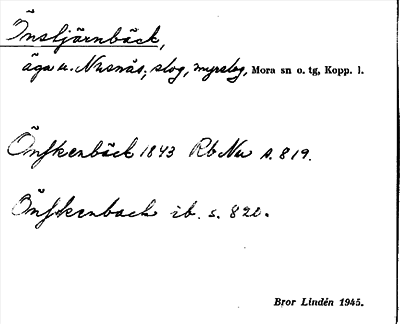 Önstjärnbäck,
äga u. Nusnäs, slog, myrslog, Mora sn o. tg, Kopp. l.
Önskenbäck 1843 Rb Nu s. 819.
Önskenback ib. s. 820.
Bror Lindén 1945.